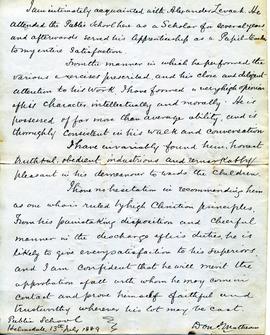 I am intimately acquainted with Alexander Levack. He
attended the Public School here as a Scholar for several years
and afterwards served his Apprenticeship as a Pupil Teacher
to my entire Satisfaction.
From the manner in which he performed the
various exercises prescribed, and his close and diligent
attention to his Work I have formed a very high opinion
of his Character, intellectually and morally. He is
possessed of far more than average ability, and is
thoroughly consistent in his walk and conversation.
I have invariably found him, honest
truthful, obedient, industrious and remarkably
pleasant in his demeanour towards the Children.
I have no hesitation in recommending him
as one who is ruled by high Christian principles.
From his painstaking disposition and cheerful
manner in the discharge of his duties, he is
likely to give every satisfaction to his Superiors
and I am confident that he will merit the
approbation of all with whom he may come in
contact and prove himself faithful and
trustworthy wherever his lot may be cast
Public School
Helmsdale 13th July 1889